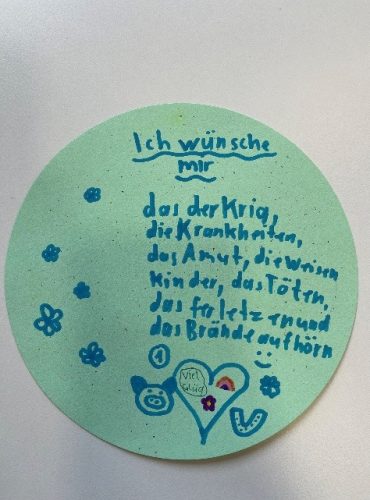 Ich wünsche
mir
das der Krig,
die Krankheiten,
das Amut, die weisen
kinder, das Töten,
das ferletzen und
das Brände aufhörn
1
Viel
Glück